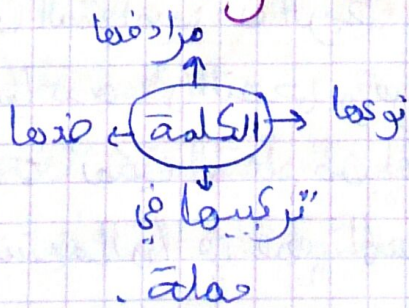 مرادفها
نوعها
الكلمة
ضدها
تركيبها في
جملة .